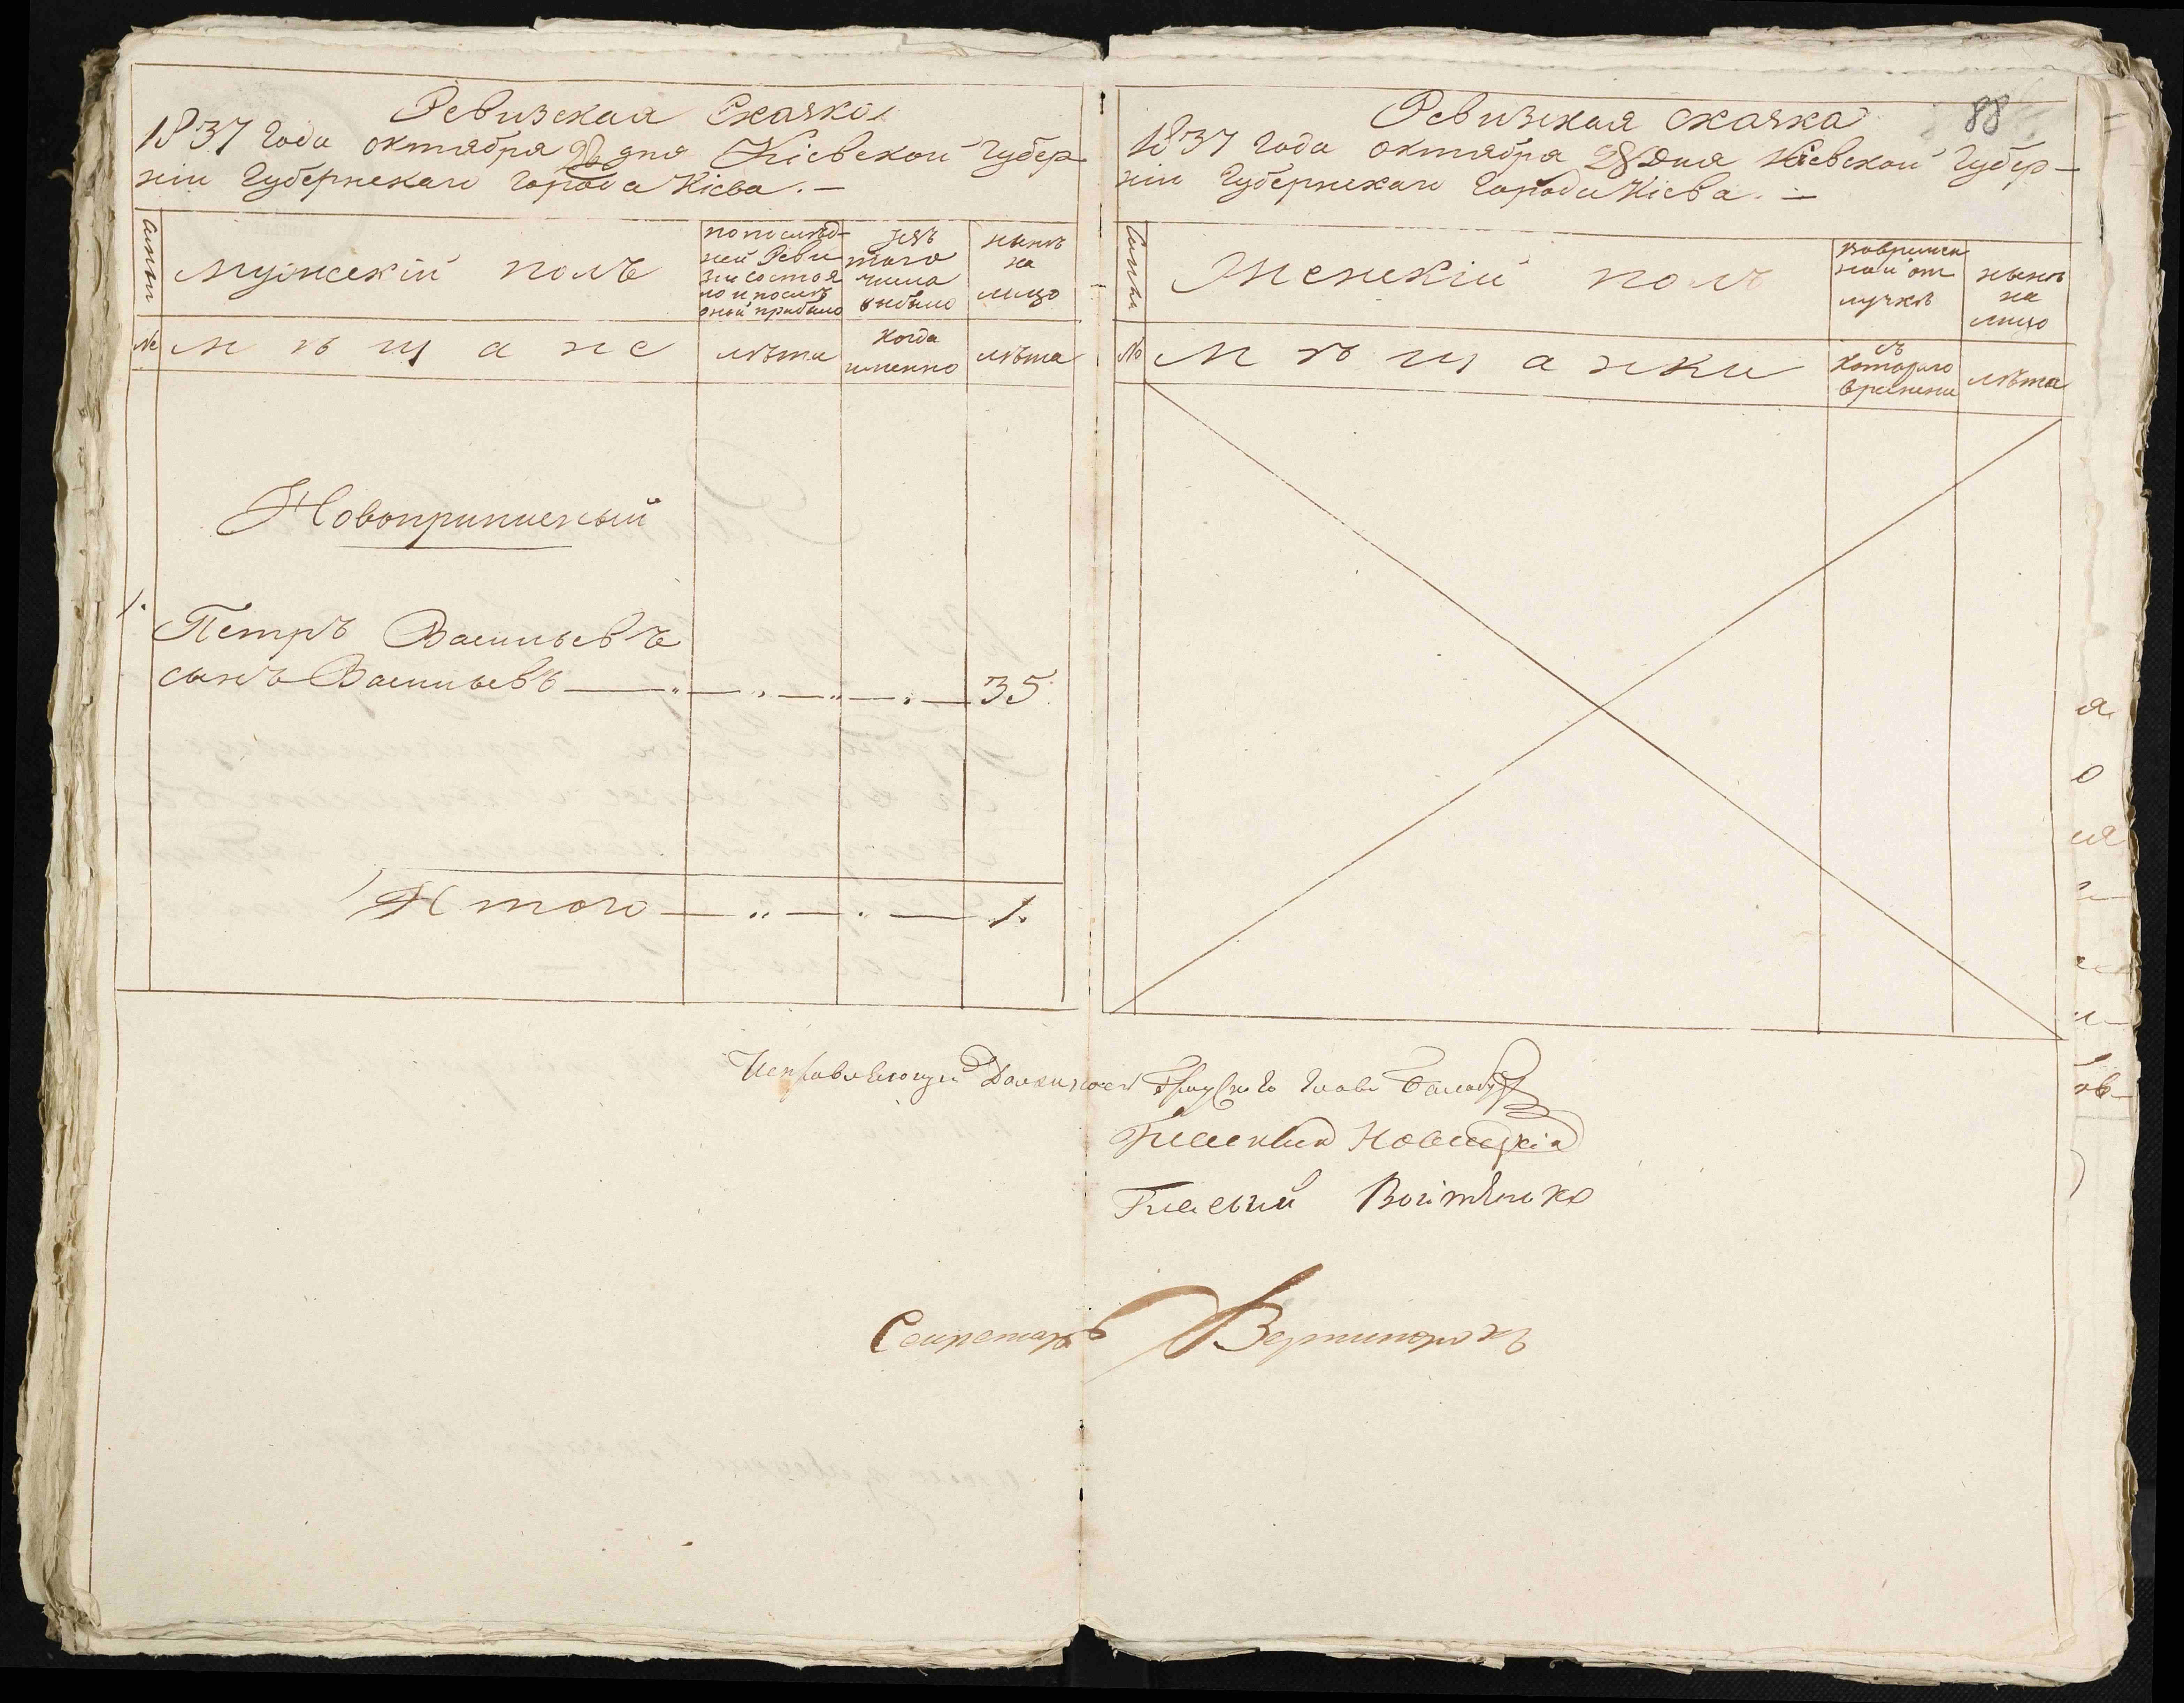 Ревизская Сказка
1837 Года октября 28 дня Кіевской Губер-
ніи Губернскаго Города Кіева. —
Семьи
Мужескій полъ
по послѣд-
ней Реви
зіи состоя
ло и послѣ
оной прибыло
изъ
того
числа
выбыло
нынѣ
на
лицо
№
Мѣщане
лѣта
Когда
именно
лѣта
Новоприписный
1.
Петръ Васильевъ
сынъ Васильевъ — 35.
Итого — 1.
88
Ревизская сказка
1837 Года октября 28 Дня Кіевской Губер-
ніи Губернскаго Города Кіева. —
Семьи
Женскій полъ
Вовремен
ной от
лучкѣ
нынѣ
на
лицо
№
Мѣщанки
съ
Котораго
времени
лѣта
Исправляющій Должность Градского Главы
Гласный Новицкій
Гласный Войтенко
Секретарь